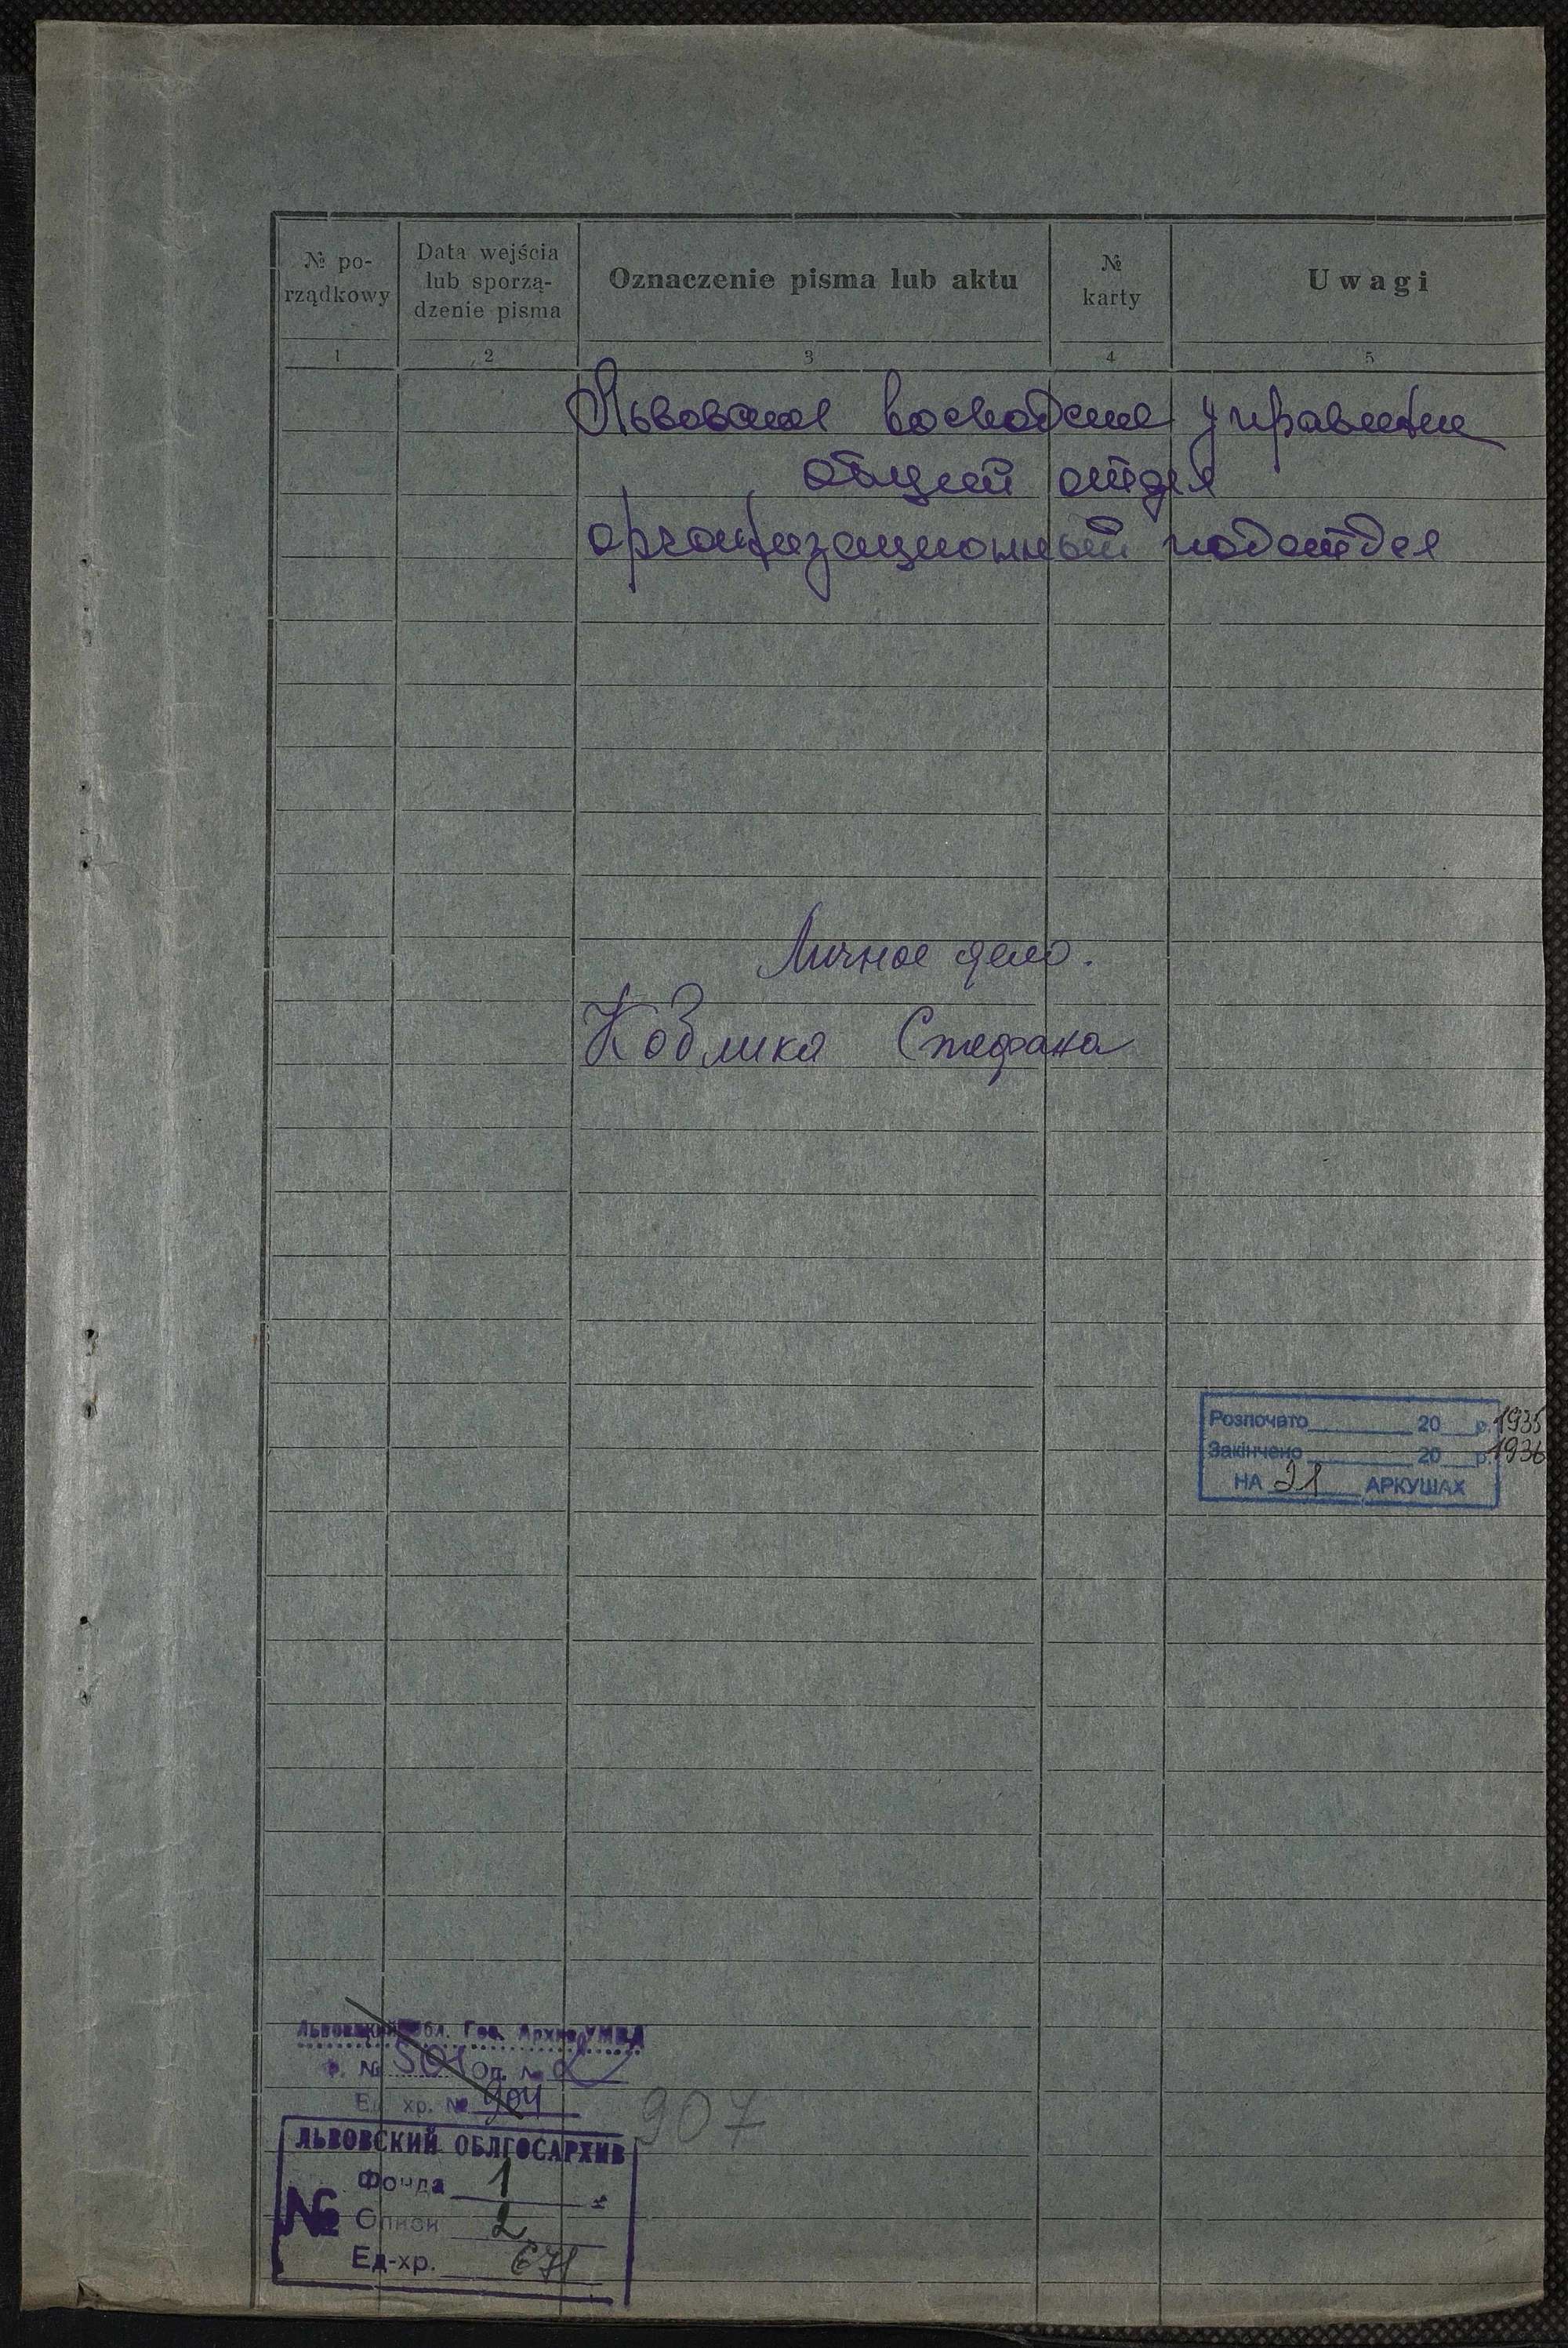 № po-
rządkowy
Data wejścia
lub sporzą-
dzenie pisma
Oznaczenie pisma lub aktu
№
karty
Uwagi
1 2 3 4 5
Львовское управление
общий отдел
организационный подотдел
Личное дело.
Коблика Стефана
Розпочато 20 р. 1935
Закінчено 20 р. 1936
НА 21 АРКУШАХ
Львовский Обл. Гос. Архив УМВД
Ф. № 501 Оп. № 2
Ед. хр. № 904
907
ЛЬВОВСКИЙ ОБЛГОСАРХИВ
Фонда 1
№ Описи 2
Ед-хр. 671